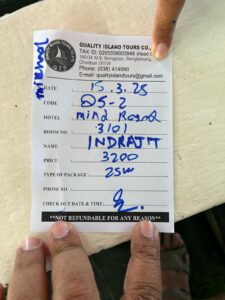 QUALITY ISLAND TOURS CO.,
TAX ID: 0205558033846 (Head
Chonburi 20150
Phone: (038) 414090
E-mail: qualityislandtours@gmail.com
DATE 15.3.25
CODE QS-2
HOTEL mind Resond
ROOM NO. 3101
NAME INDRAJIT
PRICE 3200
TYPE OF PACKAGE
PHONE NO
CHECK OUT DATE & TIME
**NOT REFUNDABLE FOR ANY REASON**